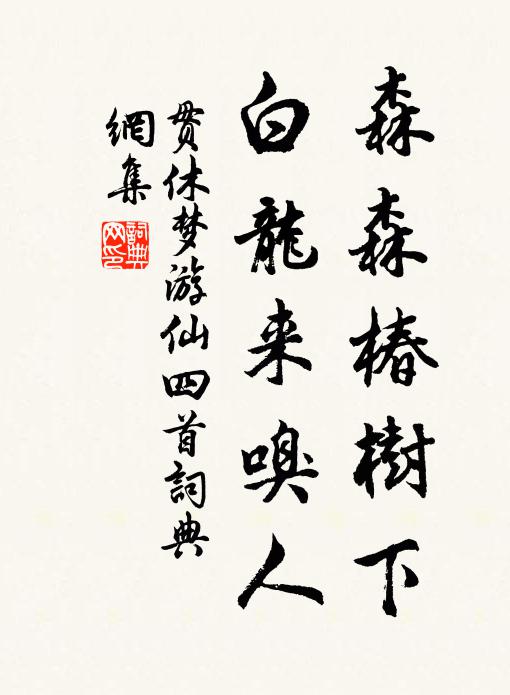 森森椿樹下
白龍来嗅人
贯休梦游仙四首詞典
網集
詞典网印